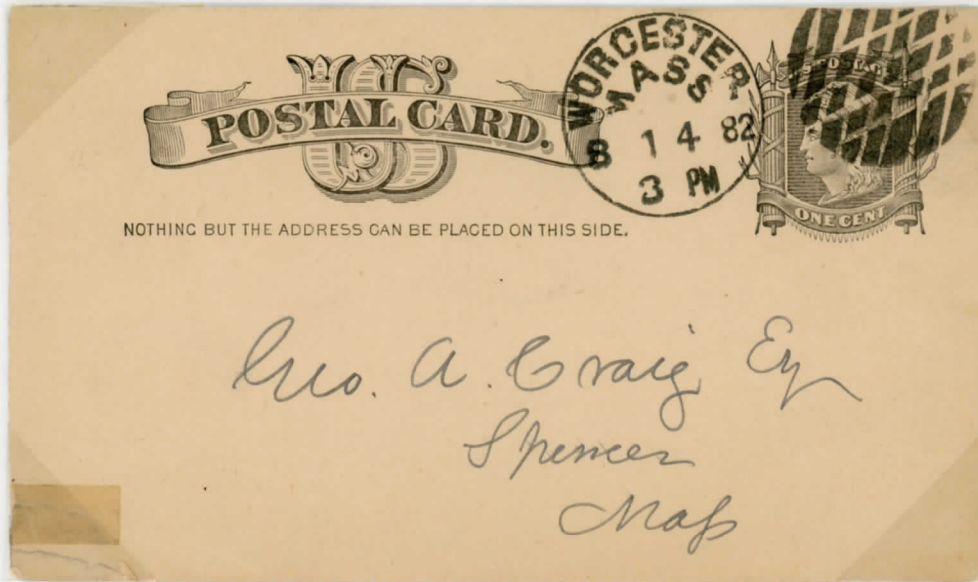 US
POSTAL CARD.
WORCESTER
MASS
8 14 82
3 PM
U.S. POSTAGE
ONE CENT
NOTHING BUT THE ADDRESS CAN BE PLACED ON THIS SIDE.
Geo. A. Craig, Esq
Spencer
Mass